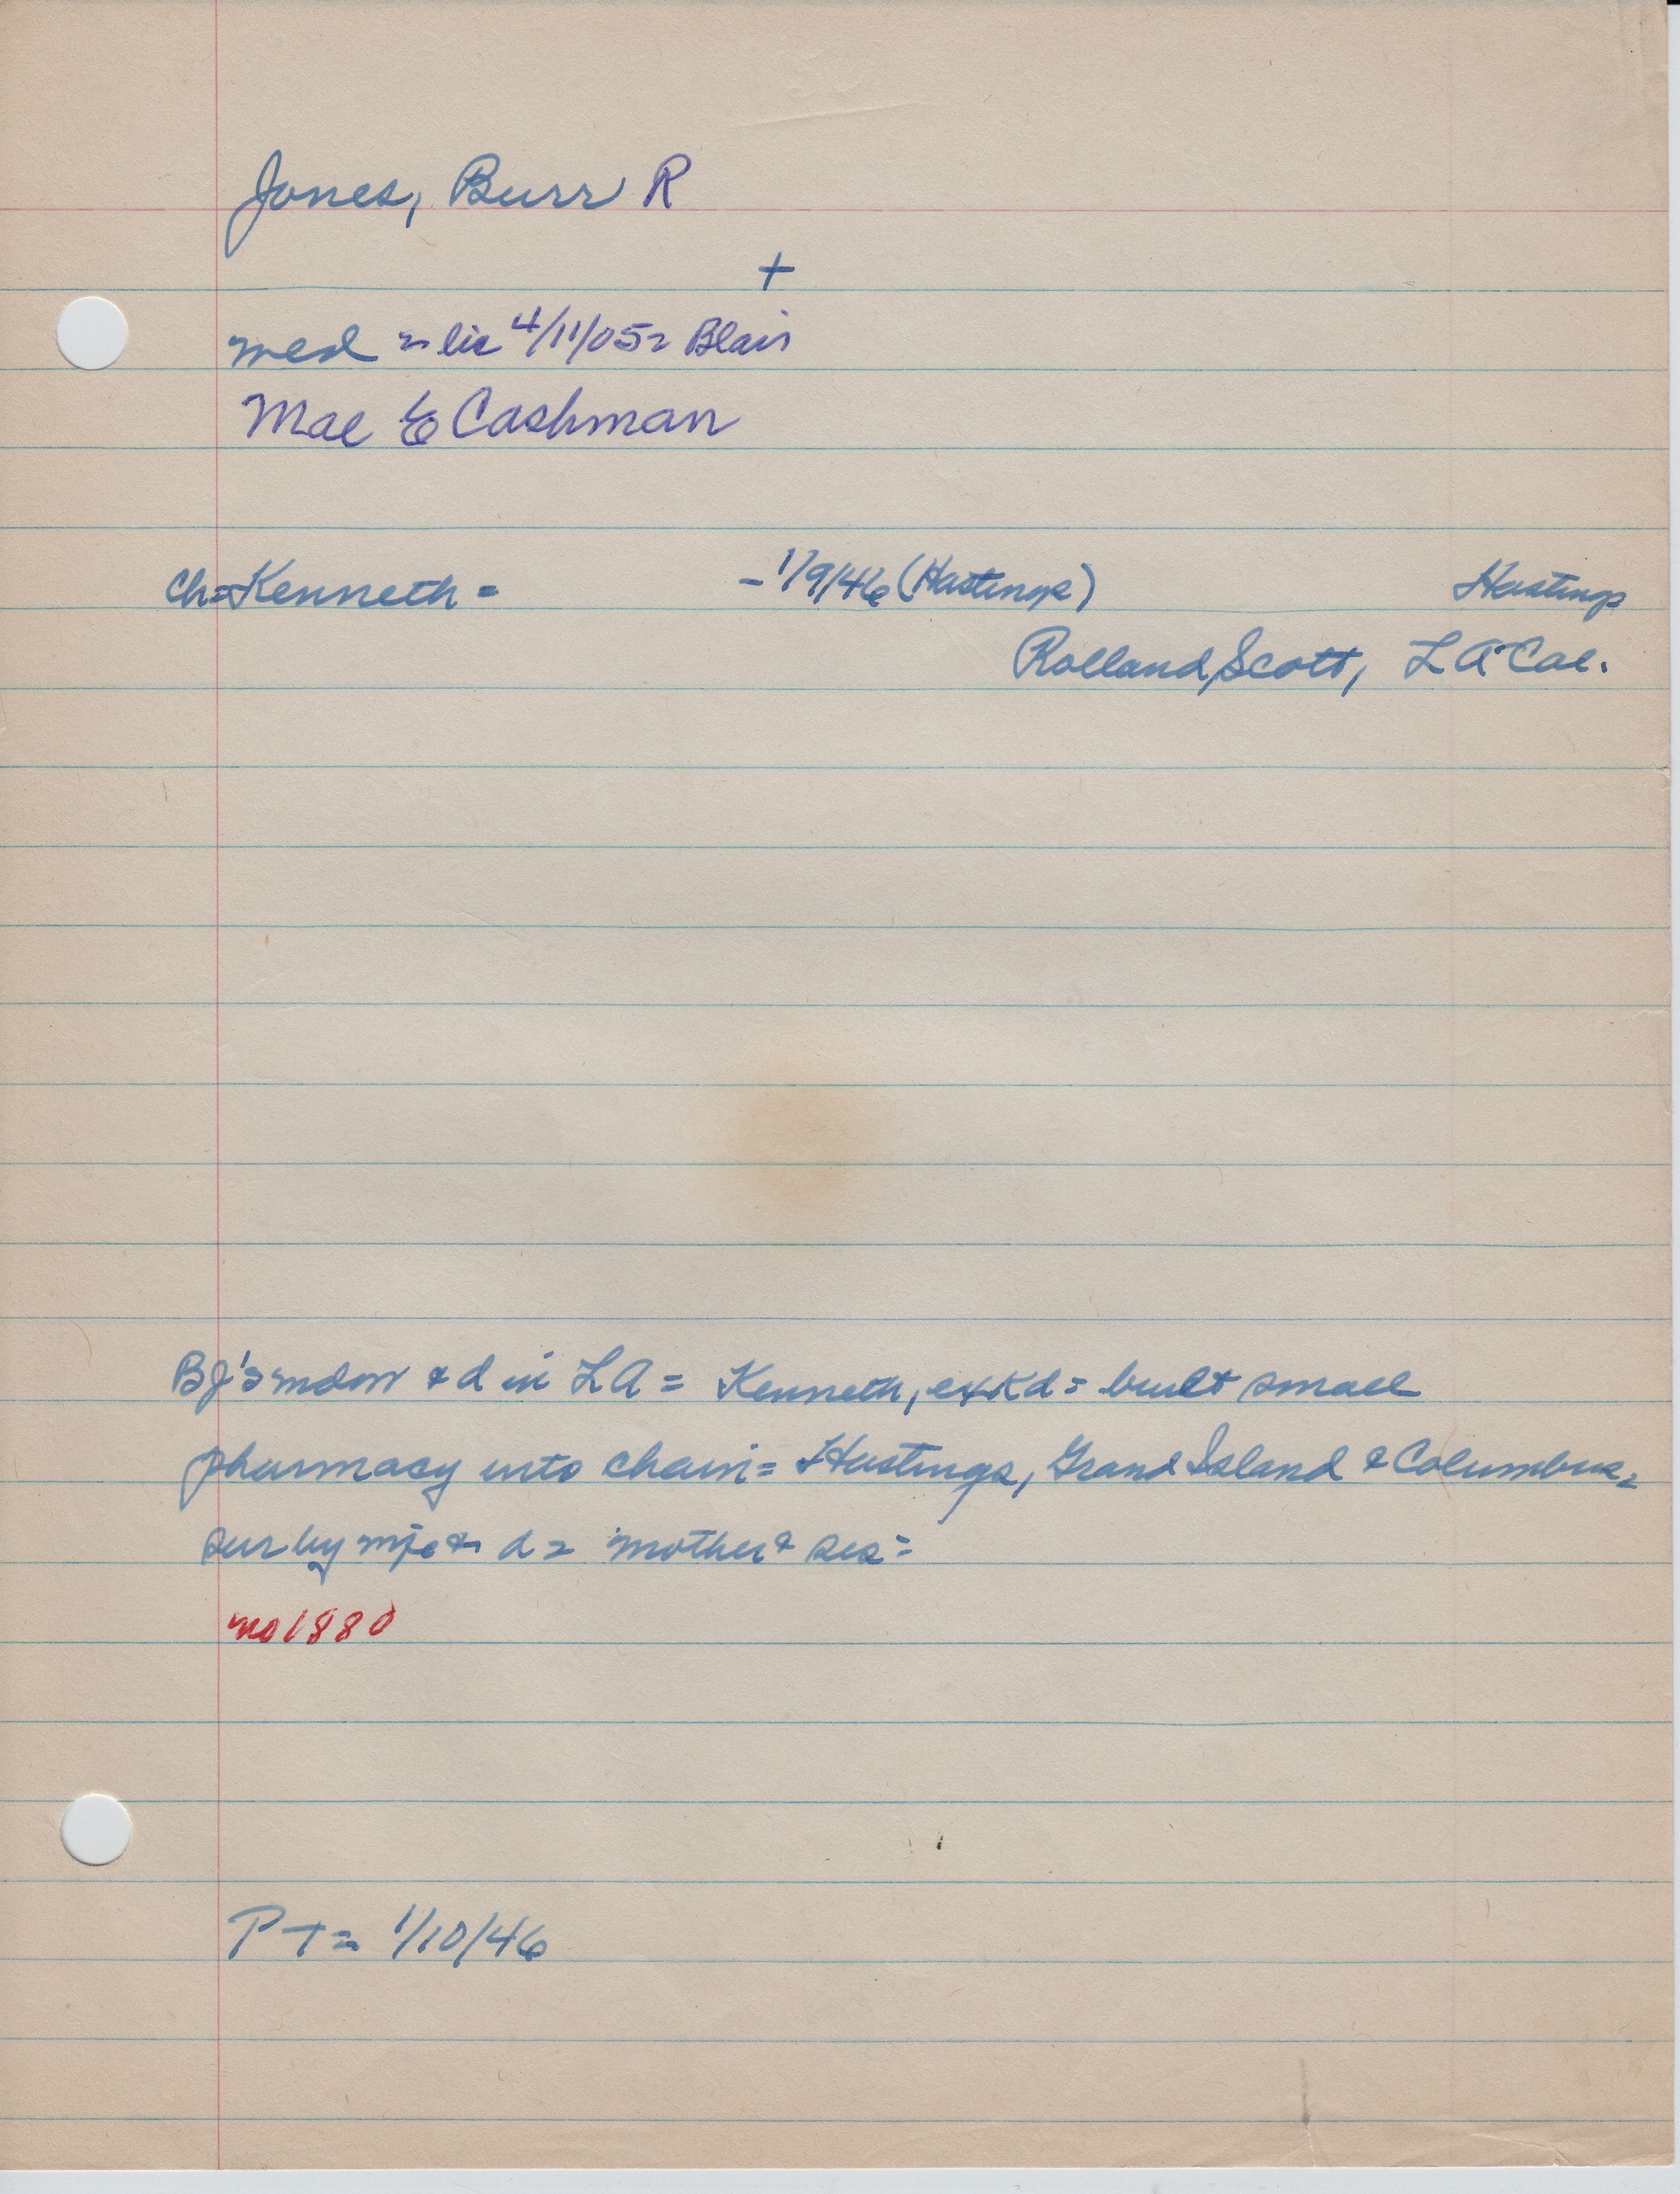 Jones, Burr R
+
med = lic 4/11/05 = Blair
Mae E Cashman
Ch = Kenneth = - 1/9/46 (Hastings) Hastings
Rolland, Scott, LA Cal.
BJ's & d in LA = Kenneth, = built small
pharmacy into chain = Hastings, Grand Island & Columbus =
sur by & d = mother & sis =
no 1880
PT = 1/10/46